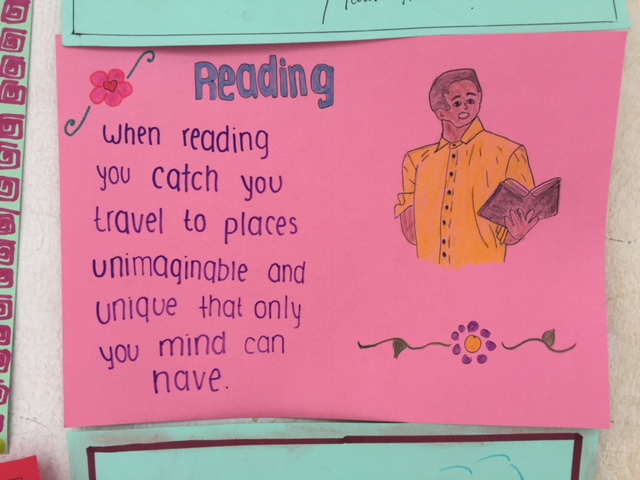 Reading
When reading
you catch you
travel to places
unimaginable and
unique that only
you mind can
nave.